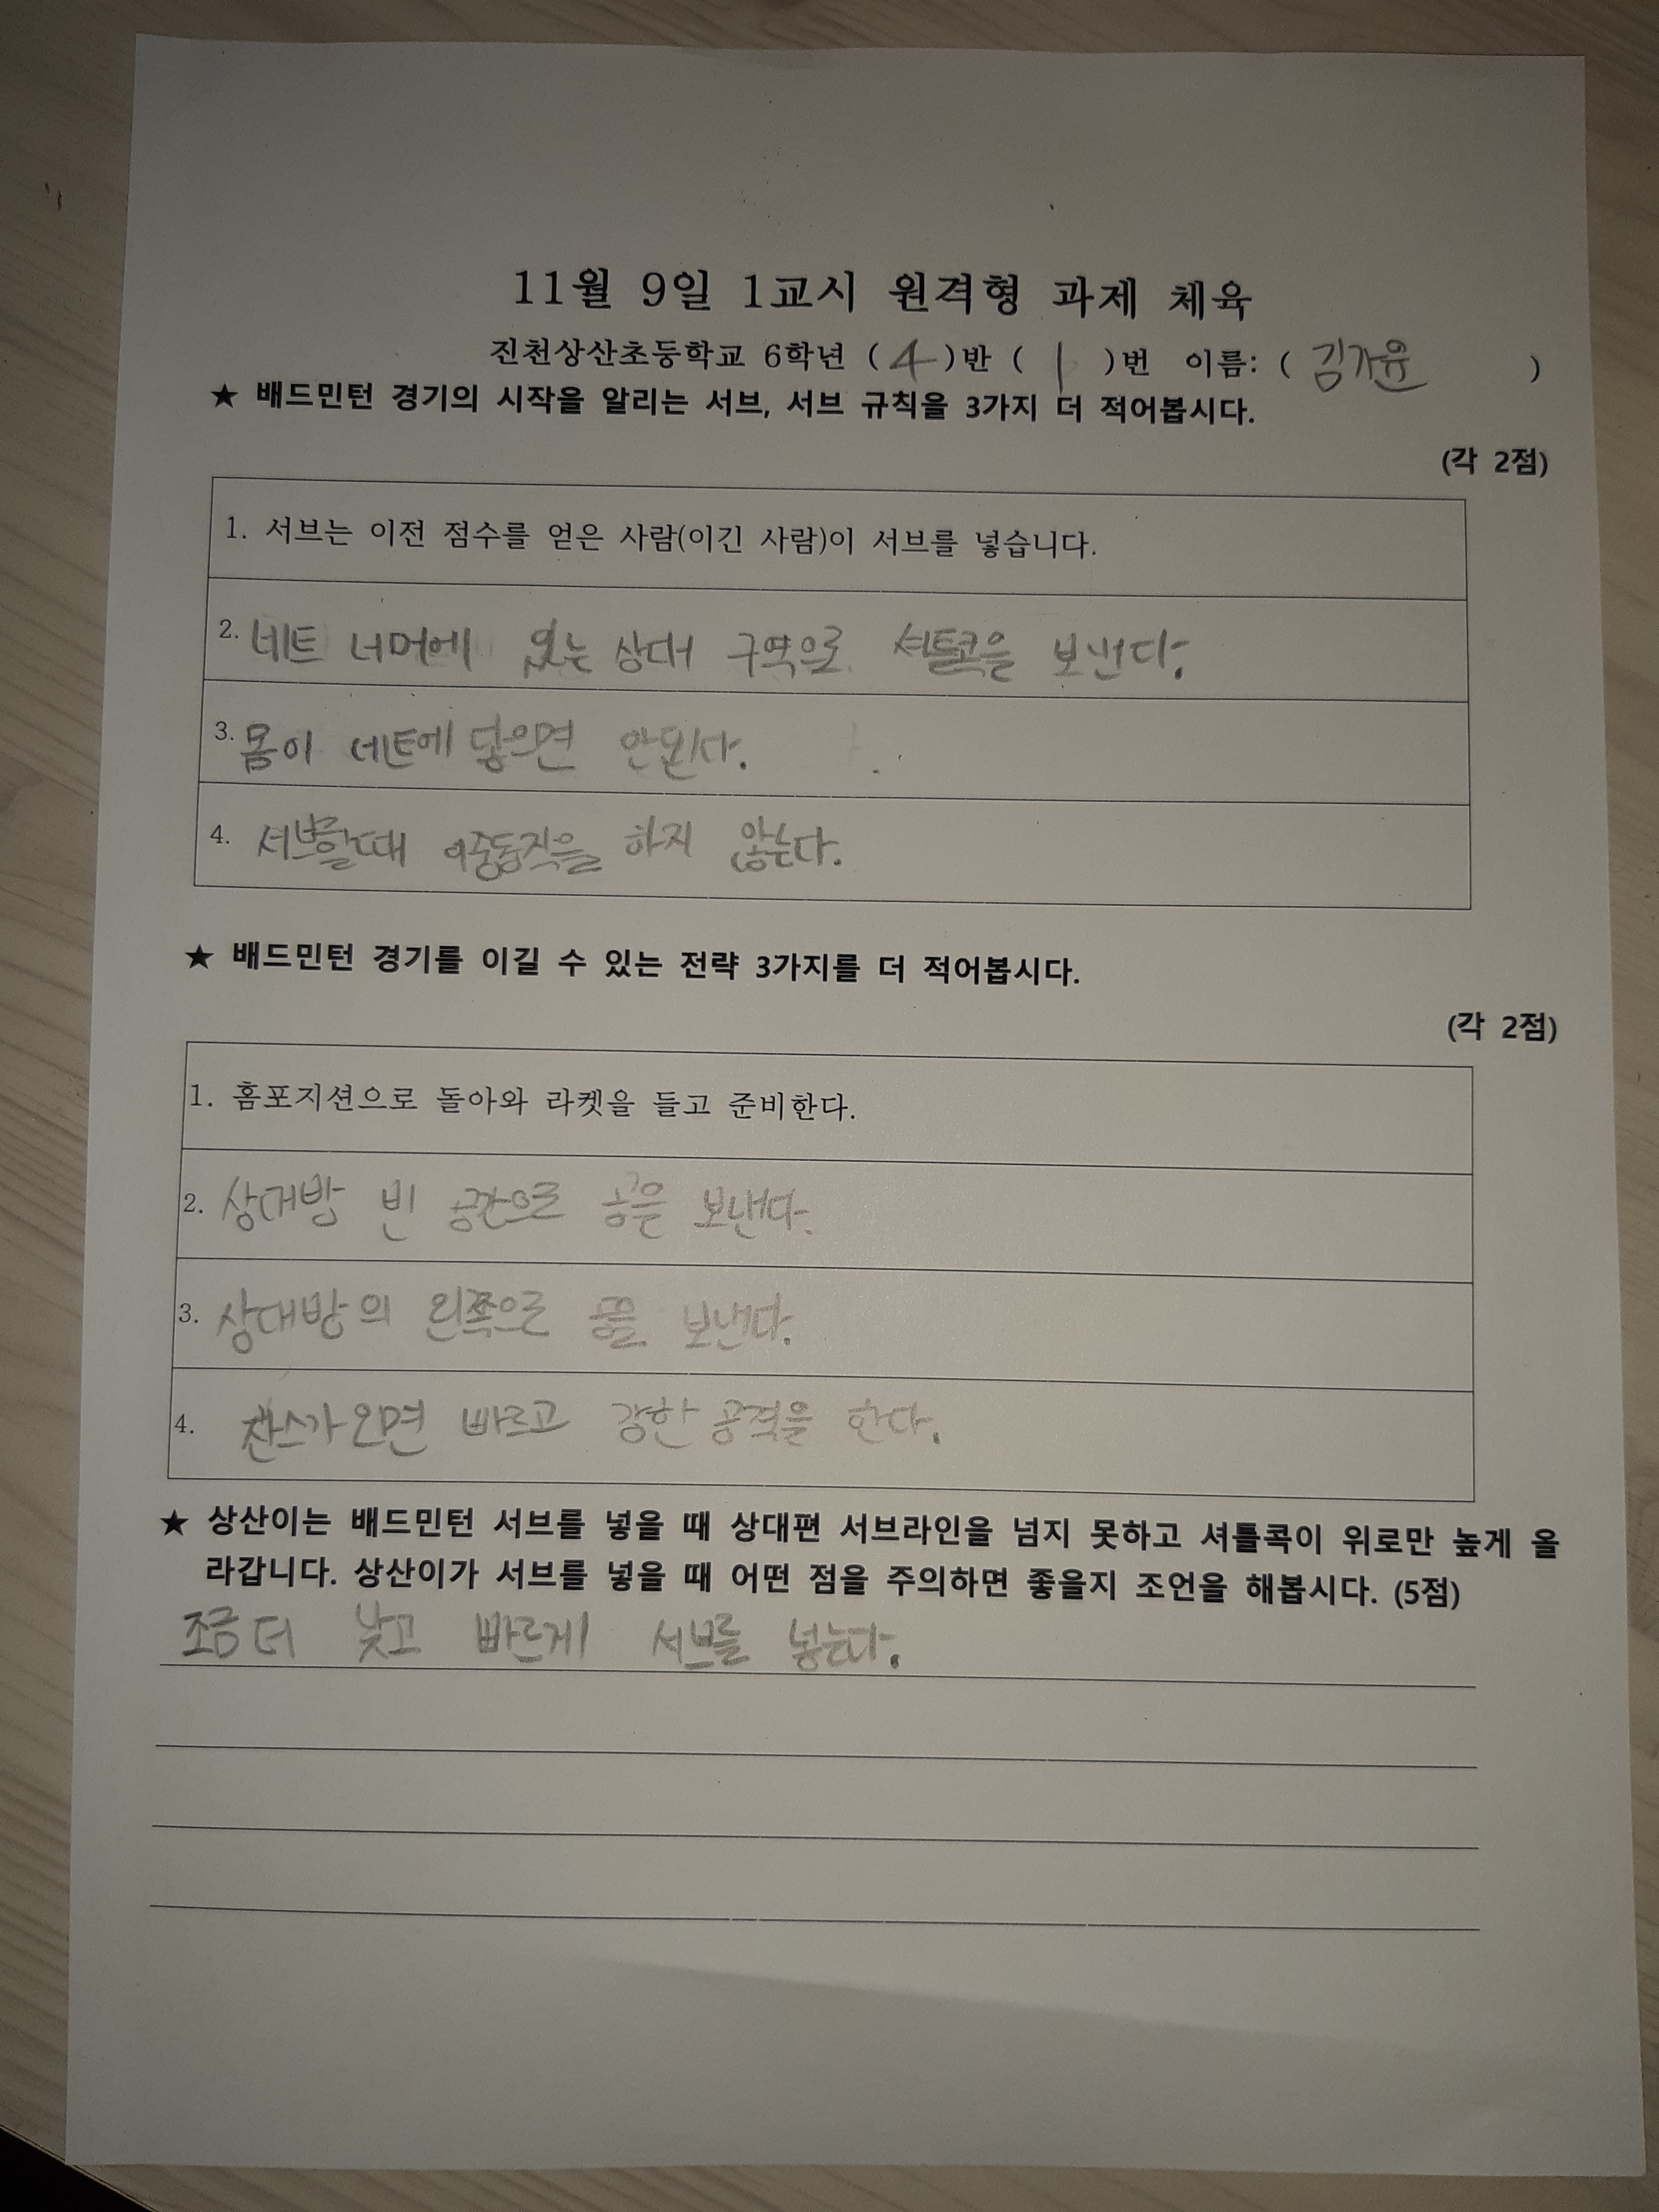 11월 9일 1교시 원격형 과제 체육
진천상산초등학교 6학년 (4)반 (1)번 이름: (김가윤)
★ 배드민턴 경기의 시작을 알리는 서브, 서브 규칙을 3가지 더 적어봅시다.
(각 2점)
1. 서브는 이전 점수를 얻은 사람(이긴 사람)이 서브를 넣습니다.
2. 네트 너머에 있는 상대 구역으로 셔틀콕을 보낸다.
3. 몸이 네트에 닿으면 안된다.
4. 서브할때 이중동작을 하지 않는다.
★ 배드민턴 경기를 이길 수 있는 전략 3가지를 더 적어봅시다.
(각 2점)
1. 홈포지션으로 돌아와 라켓을 들고 준비한다.
2. 상대방 빈 공간으로 공을 보낸다.
3. 상대방의 왼쪽으로 공을 보낸다.
4. 찬스가 오면 빠르고 강한 공격을 한다.
★ 상산이는 배드민턴 서브를 넣을 때 상대편 서브라인을 넘지 못하고 셔틀콕이 위로만 높게 올
라갑니다. 상산이가 서브를 넣을 때 어떤 점을 주의하면 좋을지 조언을 해봅시다. (5점)
조금 더 낮고 빠르게 서브를 넣는다.